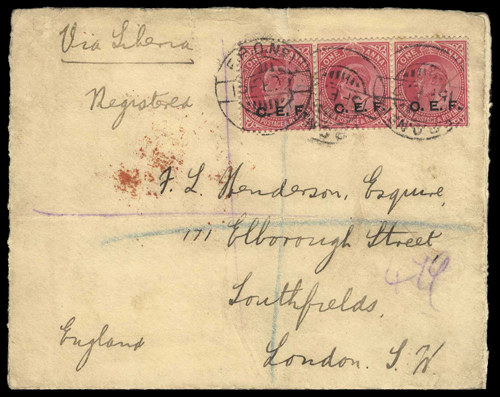 Via Siberia
Registered
C. E. F. C. E. F. C. E. F.
F. L. Henderson, Esquire,
171 Elborough Street
Southfields,
London. S. W.
England